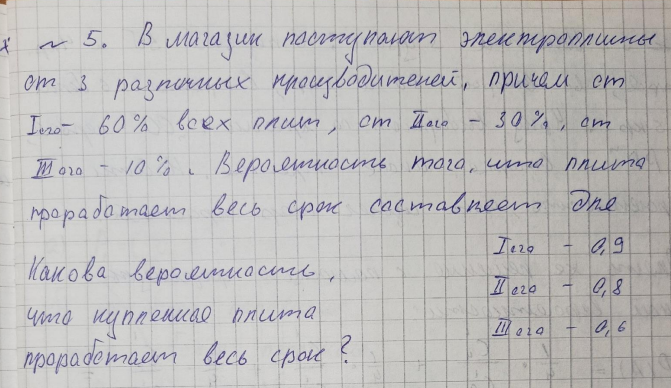 х № 5. В магазин поступают электроплиты
от 3 различных производителей, причем от
I ого - 60% всех плит, от II ого - 30%, от
III ого - 10%. Вероятность того, что плита
проработает весь срок составляет для
I ого - 0,9
Какова вероятность,
II ого - 0,8
что купленная плита
III ого - 0,6
проработает весь срок?